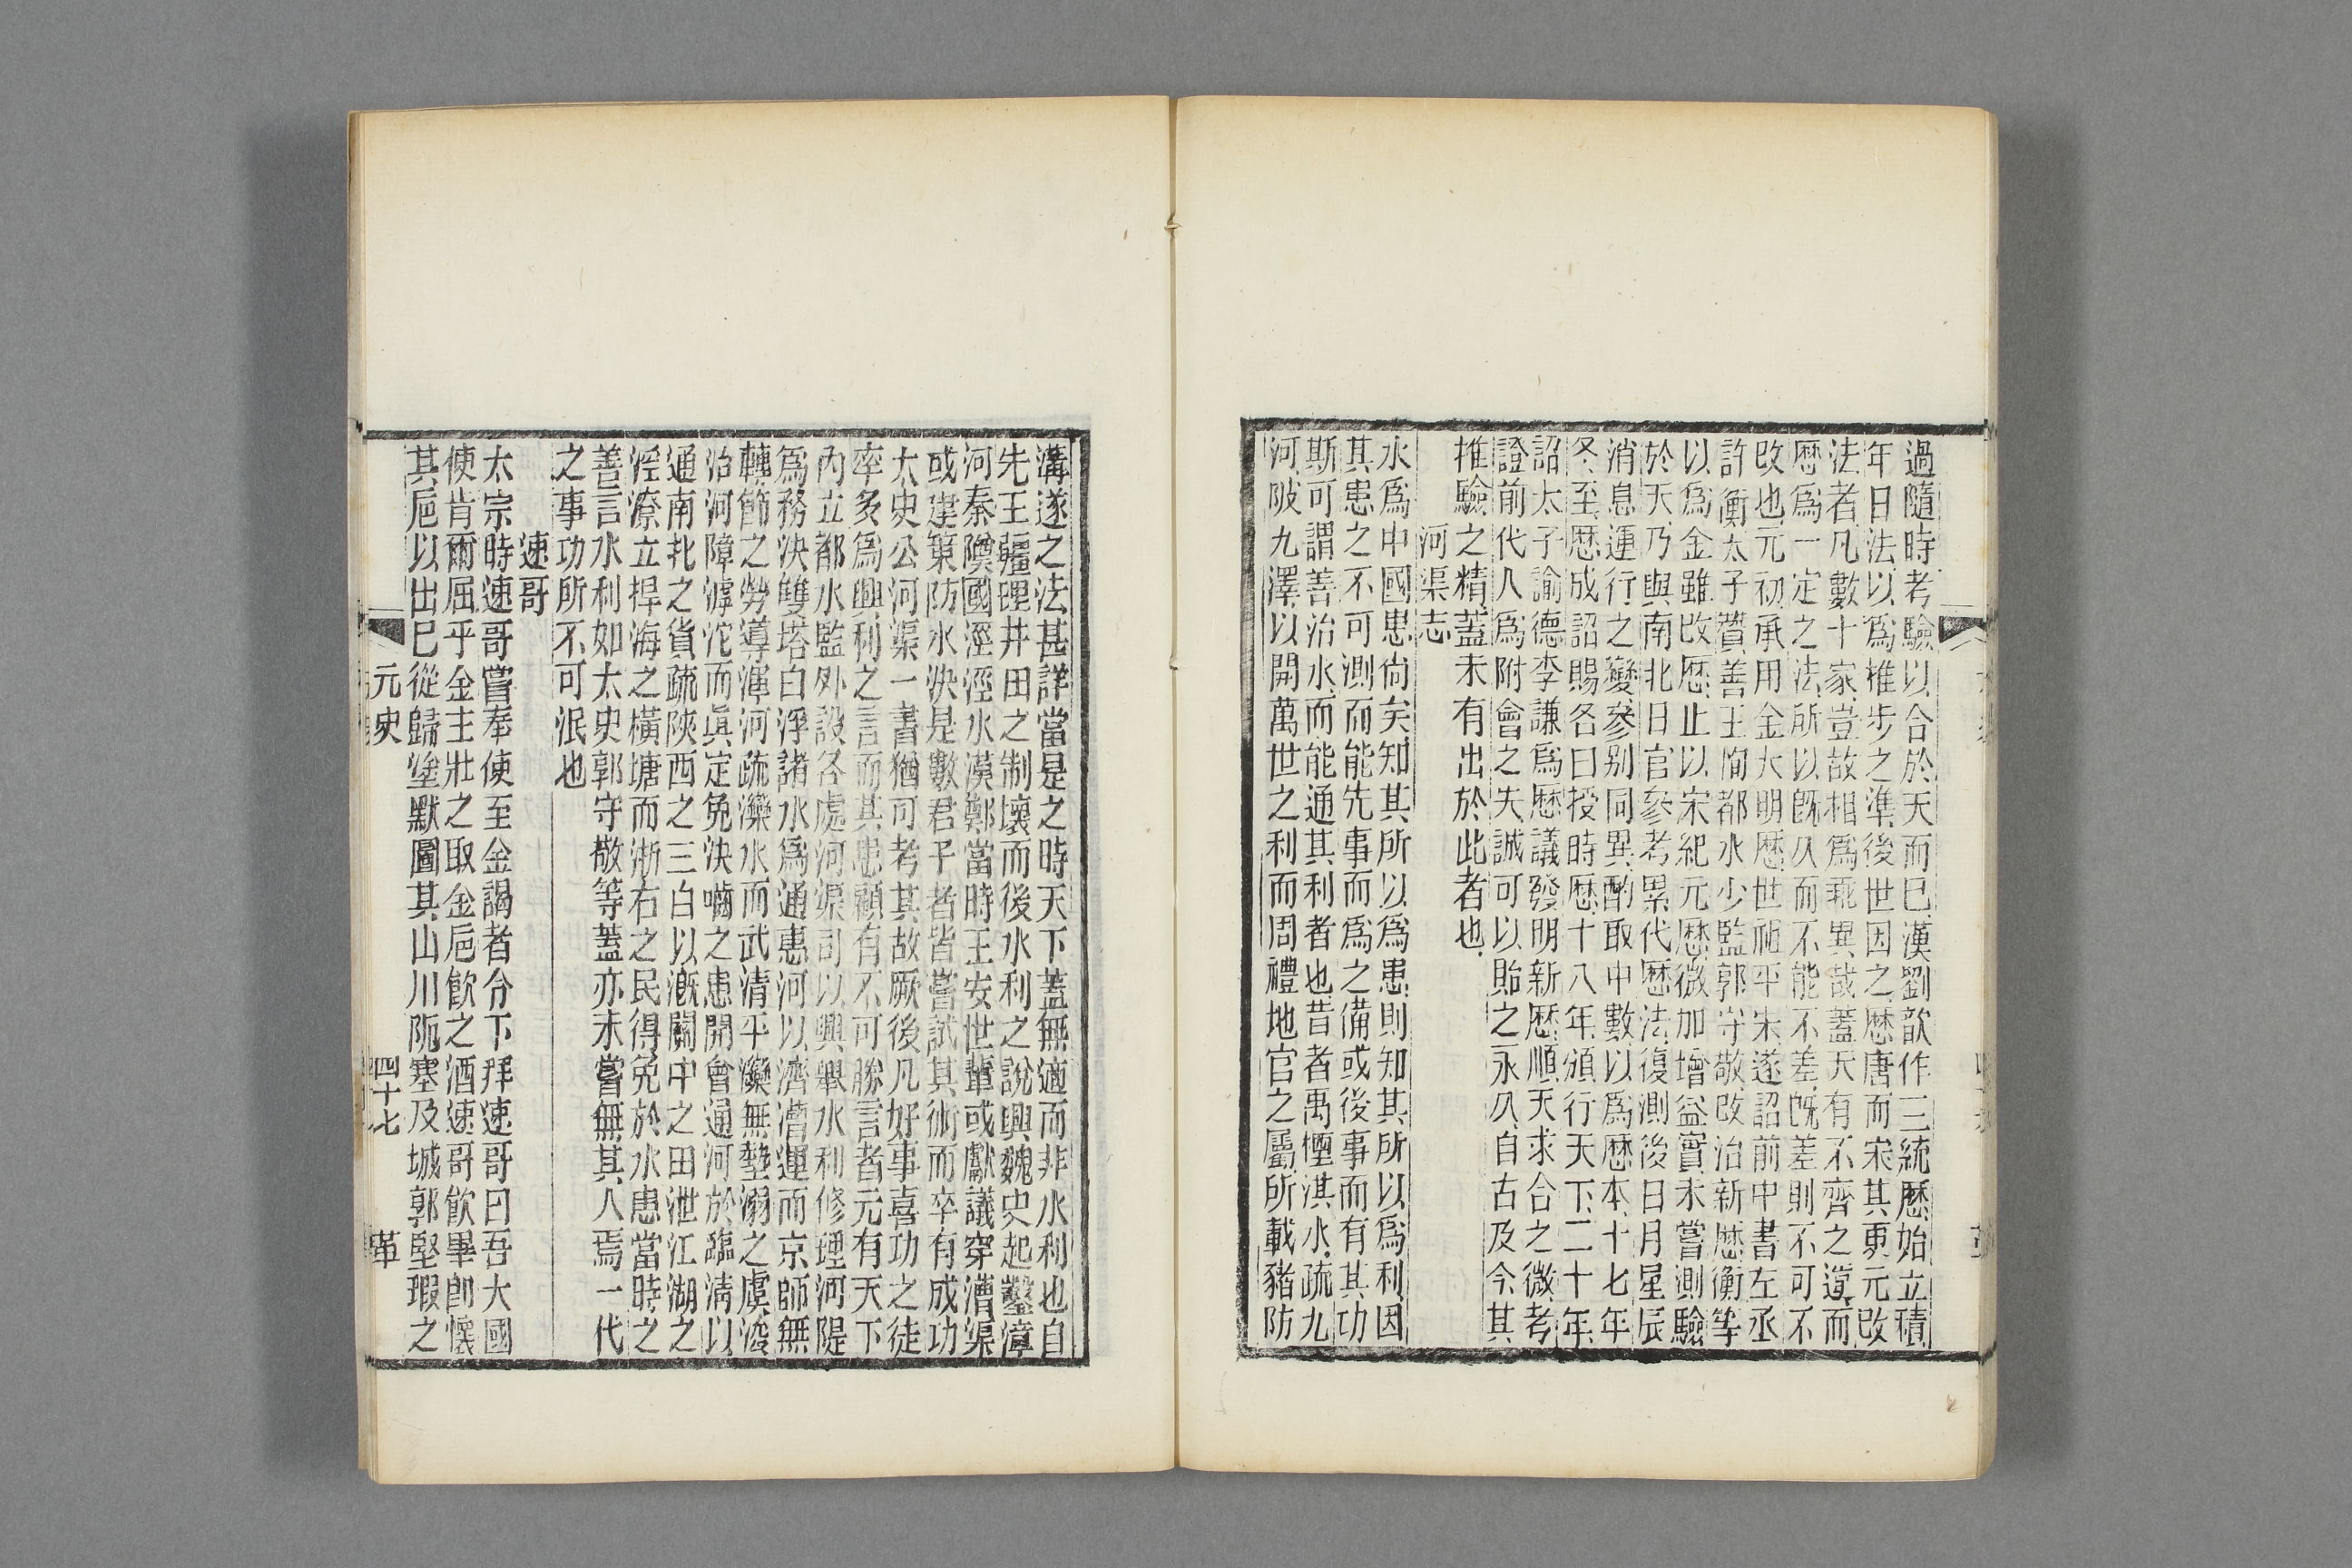 過隨時考驗以合於天而巳漢劉歆作三統歷始立積
年日法以爲推步之準後世因之歷唐而宋其更元改
法者凡數十家豈故相爲乖異哉蓋天有不齊之道而
歷爲一定之法所以旣久而不能不差旣差則不可不
改也元初承用金大明歷世祖平宋遂詔前中書左丞
許衡太子贊善王恂都水少監郭守敬改治新歷衡等
以爲金雖改歷止以宋紀元歷微加增益實未嘗測驗
於天乃與南北日官參考累代歷法復測後日月星辰
消息運行之變參别同異酌取中數以爲歷本十七年
冬至歷成詔賜名曰授時歷十八年頒行天下二十年
詔太子諭德李謙爲歷議發明新歷順天求合之微考
證前代人爲附會之失誠可以貽之永久自古及今其
推驗之精蓋未有出於此者也
河渠志
水爲中國患尙矣知其所以爲患則知其所以爲利因
其患之不可測而能先事而爲之備或後事而有其功
斯可謂善治水而能通其利者也昔者禹堙洪水疏九
河陂九澤以開萬世之利而周禮地官之屬所載豬防
溝遂之法甚詳當是之時天下蓋無適而非水利也自
先王疆理井田之制壞而後水利之說興魏史起鑿漳
河秦隩國涇涇水漢鄭當時王安世輩或獻議穿漕渠
或建策防水決是數君子者皆嘗試其術而卒有成功
太史公河渠一書猶可考其故厥後凡好事喜功之徒
率多爲興利之言而其患顧有不可勝言者元有天下
內立都水監外設各處河渠司以興舉水利修理河隄
爲務決雙塔白浮諸水爲通惠河以濟漕運而京師無
轉餉之勞導渾河疏灤水而武清平灤無墊溺之虞浚
治河障滹沱而眞定免決嚙之患開會通河於臨淸以
通南北之貨疏陝西之三白以漑關中之田泄江湖之
淫潦立捍海之橫塘而浙右之民得免於水患當時之
善言水利如太史郭守敬等蓋亦未嘗無其人焉一代
之事功所不可泯也
速哥
太宗時速哥嘗奉使至金謁者令下拜速哥曰吾大國
使肯爾屈乎金主壯之取金巵飮之酒速哥飮畢卽懷
其巵以出巳從歸塗默圖其山川阨塞及城郭堅瑕之
元史
四十七
革